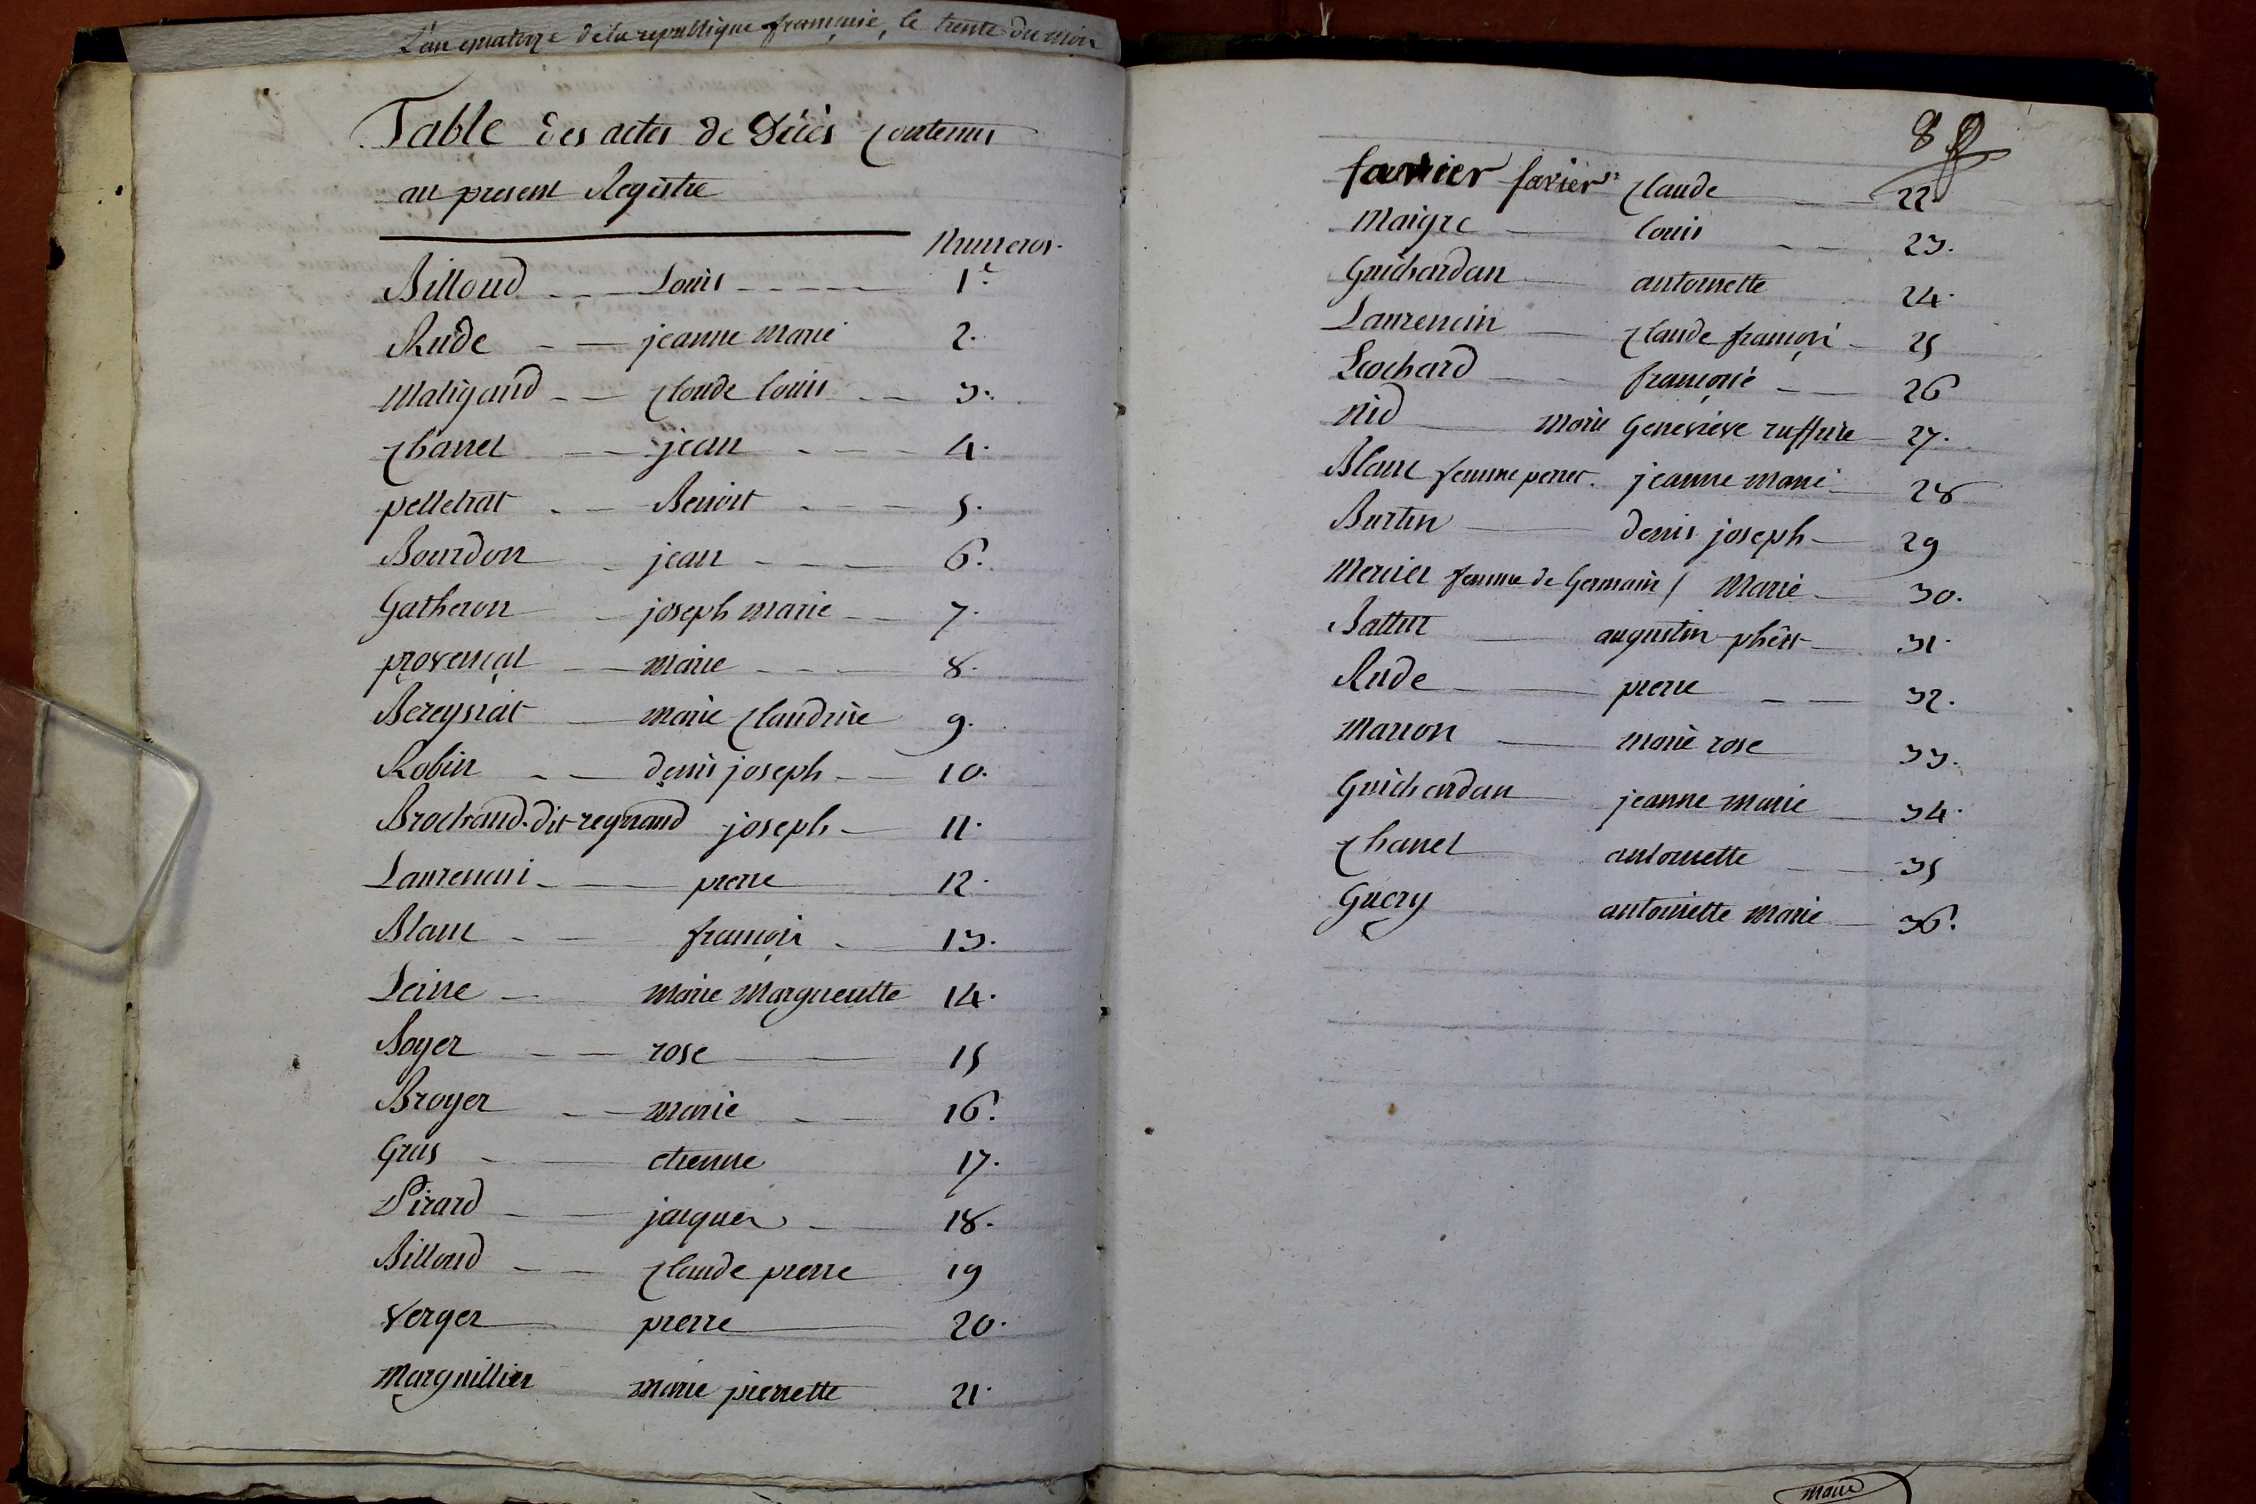 L'an quatorze de la republique françaiseie, le trente du mois
Table des actes de Décès Contenus
au present Registre
Numeros.
Billoud -- Louis ---- 1.e
Rude -- jeanne Marie 2.
Maligand -- Claude Louis -- 3.
Chanel -- jean --- 4.
pelletrat -- Benoit --- 5.
Bourdon - jean --- 6.
Gatheron - joseph marie -- 7.
provençal -- marie --- 8.
Bereysiat - marie Claudine 9.
Robin -- denis joseph -- 10.
Brochand dit reynaud joseph - 11.
Laurencin -- pierre 12.
Blanc -- françois - 13.
marie Marguerite 14.
Boyer -- rose - 15
Broyer -- marie - 16.
Gras -- etienne 17.
Pirard -- jacques - 18.
Billoud -- Claude pierre 19
Verger pierre 20.
Marguillier marie pierrette 21.
8
favier favier Claude -- 22
Maigre - Louis -- 23.
Guichardan antoinette 24.
Laurencin - Claude françois - 25
françoise - 26
Nid Marie Genevieve ruffine - 27.
Blanc femme perret. jeanne marie - 28
Burtin denis joseph - 29
Mercier femme de Germain / Marie - 30.
augustin - 31.
Rude - pierre -- 32.
Marion - marie rose 33.
Guichardan jeanne marie - 34.
Chanel antoinette -- 35
Guery antoinette Marie - 36.
maire